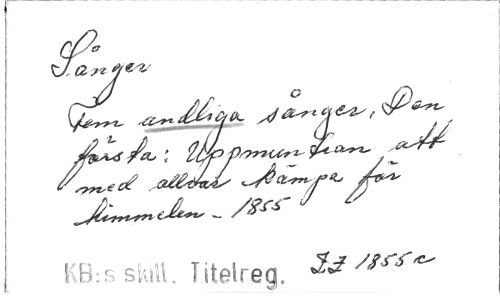 Sånger
Fem andliga sånger, Den
första: Uppmuntran att
med allvar kämpa för
himmelen - 1855
KB:s skill. Titelreg. ZZ 1855c